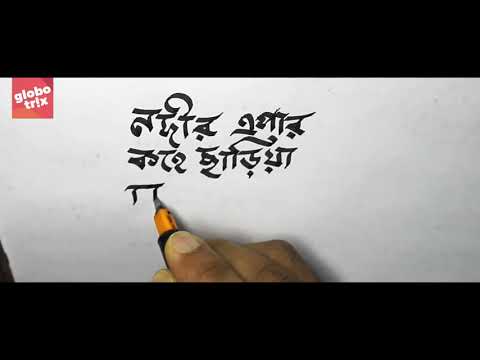 globo
tr!x
নদীর এপার
কহে ছাড়িয়া